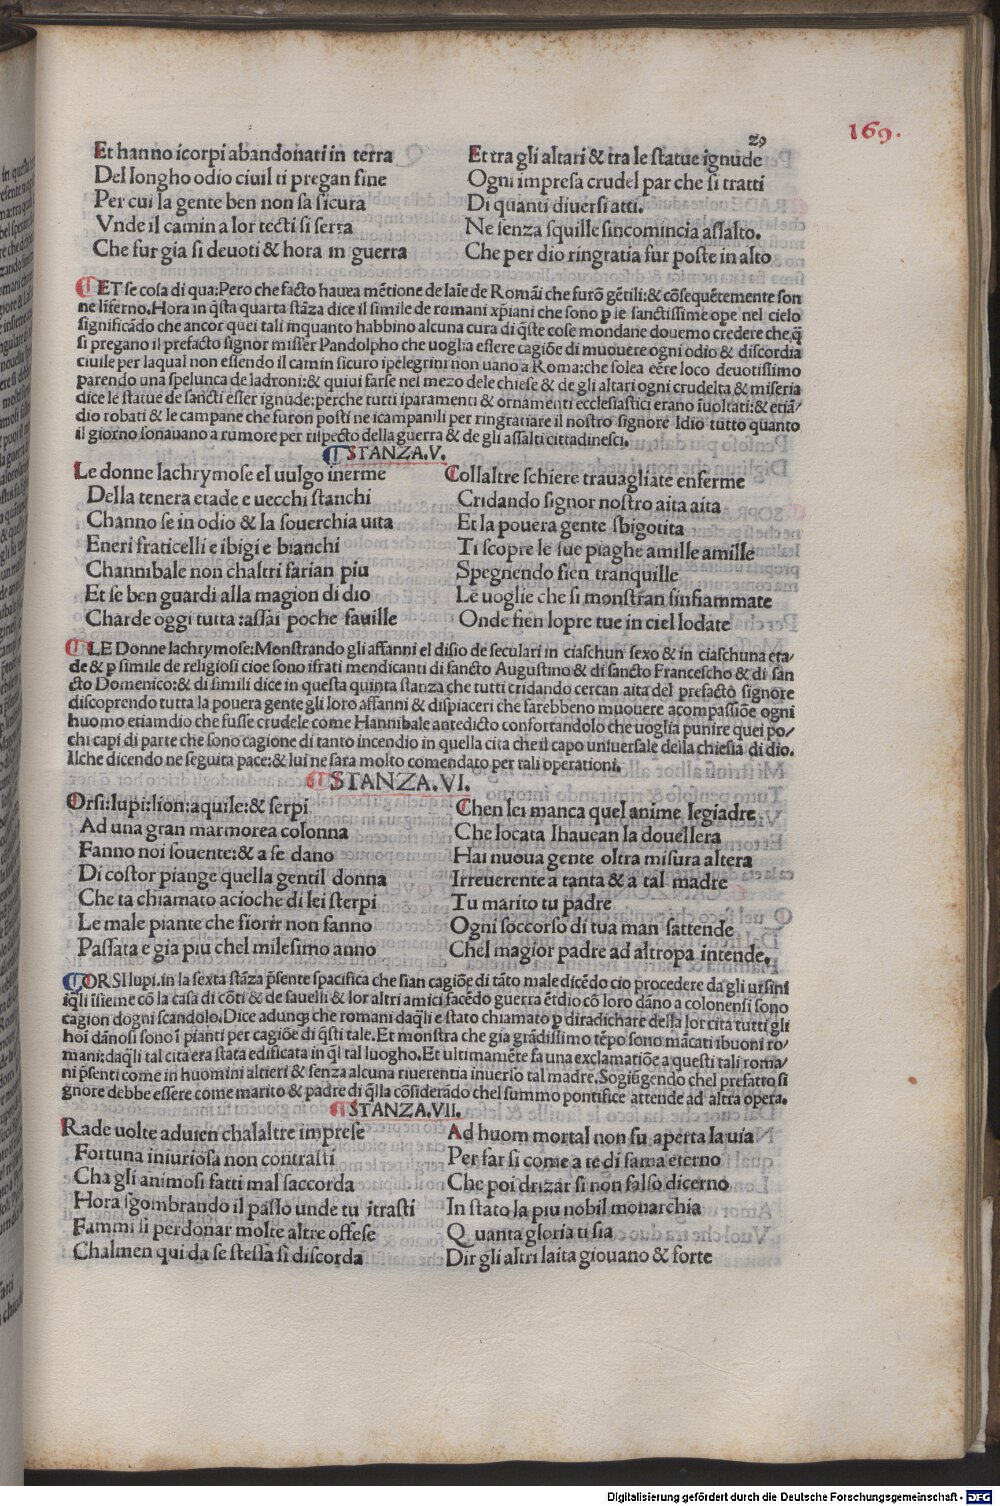 169.
29
Et hanno icorpi abandonati in terra
Del longho odio ciuil ti pregan fine
Per cui la gente ben non sa sicura
Vnde il camin a lor tecti si serra
Che fur gia si deuoti & hora in guerra
Et tra gli altari & tra le statue ignude
Ogni impresa crudel par che si tratti
Di quanti diuersi atti.
Ne senza squille sincomincia assalto.
Che per dio ringratia fur poste in alto
ET se cosa di qua: Pero che facto hauea mētione de laīe de Romāi che furō gētili: & cōsequētemente son
ne līferno. Hora in q̄sta quarta stāza dice il simile de romani xp̄iani che sono p le sanctissime ope nel cielo
significādo che ancor quei tali inquanto habbino alcuna cura di q̄ste cose mondane douemo credere che q̄
si pregano il prefacto signor misser Pandolpho che uoglia essere cagiōe di muouere ogni odio & discordia
ciuile per laqual non essendo il camin sicuro ipelegrini non uano a Roma: che solea eēre loco deuotissimo
parendo una spelunca de ladroni: & quiui farse nel mezo dele chiese & de gli altari ogni crudelta & miseria
dice le statue de sancti esser ignude: perche tutti iparamenti & ornamenti ecclesiastici erano īuoltati: & etiā/
dio robati & le campane che furon posti ne icampanili per ringratiare il nostro signore Idio tutto quanto
il giorno sonauano a rumore per rispecto della guerra & de gli assalti cittadinesci.
STANZA. V.
Le donne lachrymose el uulgo inerme
Della tenera etade e uecchi stanchi
Channo se in odio & la souerchia uita
Eneri fraticelli e ibigi e bianchi
Channibale non chaltri farian piu
Et se ben guardi alla magion di dio
Charde oggi tutta: assai poche fauille
Collaltre schiere trauagliate enferme
Cridando signor nostro aita aita
Et la pouera gente sbigotita
Ti scopre le sue piaghe amille amille
Spegnendo fien tranquille
Le uoglie che si monstran sinfiammate
Onde fien lopre tue in ciel lodate
LE Donne lachrymose: Monstrando gli affanni el disio de seculari in ciaschun sexo & in ciaschuna eta/
de & p simile de religiosi cioe sono ifrati mendicanti di sancto Augustino & di sancto Francescho & di san
cto Domenico: & di simili dice in questa quinta stanza che tutti cridando cercan aita del prefacto signore
discoprendo tutta la pouera gente gli loro affanni & dispiaceri che farebbeno muouere acompassiōe ogni
huomo etiamdio che fusse crudele come Hannibale antedicto confortandolo che uoglia punire quei po/
chi capi di parte che sono cagione di tanto incendio in quella cita che il capo uniuersale della chiesia di dio.
Ilche dicendo ne seguita pace: & lui ne sara molto comendato per tali operationi.
STANZA. VI.
Orsi: lupi: lion: aquile: & serpi
Ad una gran marmorea colonna
Fanno noi souente: & a se dano
Di costor piange quella gentil donna
Che ta chiamato acioche di lei sterpi
Le male piante che fiorir non fanno
Passata e gia piu chel milesimo anno
Chen lei manca quel anime legiadre
Che locata lhauean la douellera
Hai nuoua gente oltra misura altera
Irreuerente a tanta & a tal madre
Tu marito tu padre
Ogni soccorso di tua man sattende
Chel magior padre ad altropa intende.
ORSI lupi. in la sexta stāza p̄sente spacifica che sian cagiōe di tāto male dicēdo cio procedere da gli ursini
iq̄li īsieme cō la casa di cōti & de sauelli & lor altri amici facēdo guerra ētdio cō loro dāno a colonensi sono
cagion dogni scandolo. Dice adunq; che romani daq̄li e stato chiamato p diradichare dessa lor cita tutti gli
hoī dānosi sono ī pianti per cagiōe di q̄sti tale. Et monstra che gia grādissimo tēpo sono mācati ibuoni ro/
mani: daq̄li tal cita era stata edificata in q̄l tal luogho. Et ultimamēte fa una exclamatiōe a questi tali roma/
ni p̄senti come in huomini altieri & senza alcuna riuerentia inuerso tal madre. Sogiūgendo chel prefatto si
gnore debbe essere come marito & padre di q̄lla cōsiderādo chel summo pontifice attende ad altra opera.
STANZA. VII.
Rade uolte aduien chalaltre imprese
Fortuna iniuriosa non contrasti
Cha gli animosi fatti mal saccorda
Hora sgombrando il passo unde tu itrasti
Fammi si perdonar molte altre offese
Chalmen qui da se stessa si discorda
Ad huom mortal non fu aperta la uia
Per far si come a te di fama eterno
Che poi drizar si non falso dicerno
In stato la piu nobil monarchia
Quanta gloria ti sia
Dir gli altri laita giouano & forte
Digitalisierung gefördert durch die Deutsche Forschungsgemeinschaft - DFG